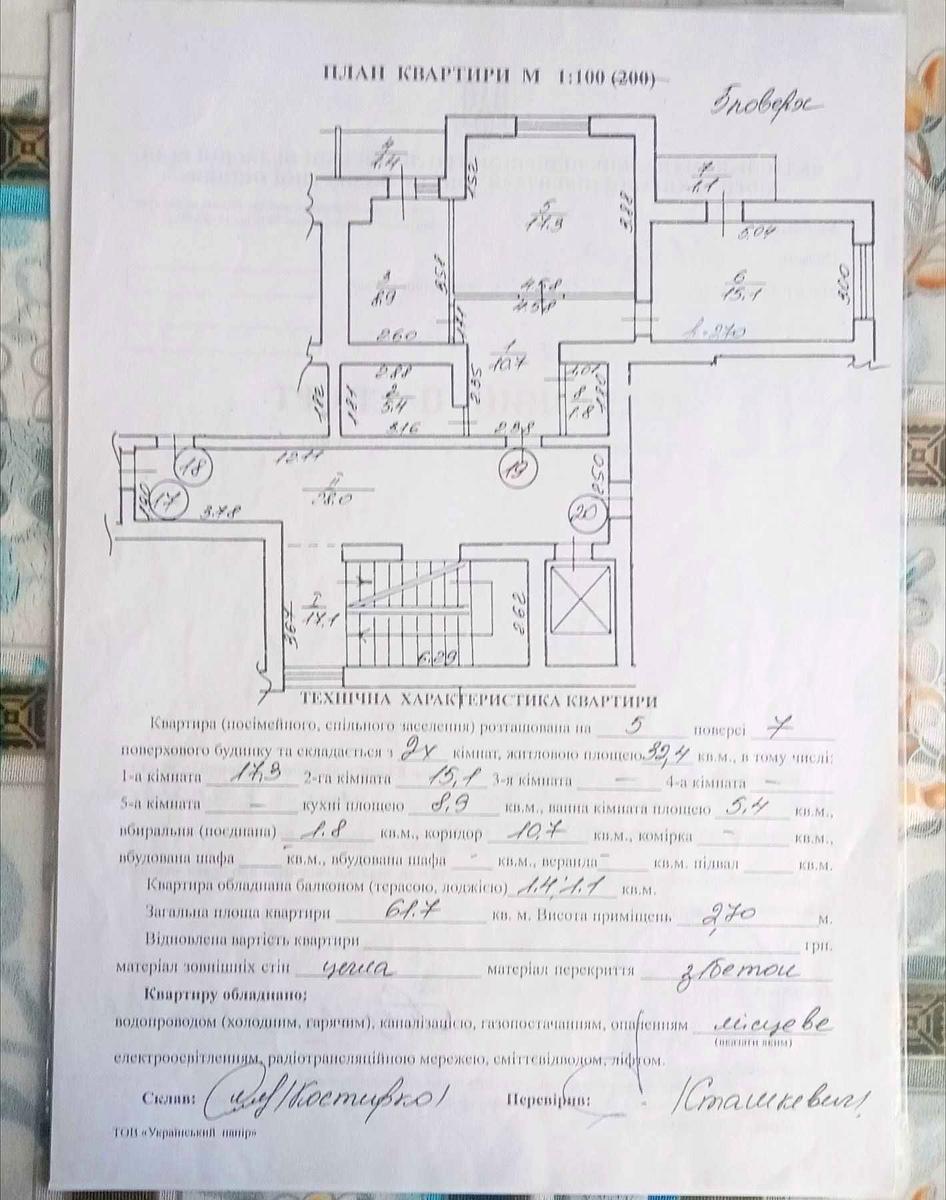 ПЛАН КВАРТИРИ М 1:100 (200)
5поверх
4
1.4
7
1.1
1.52
5
17.3
3.88
5.04
6
15.1
3.00
h-2.70
3
8.9
3.57
4.58
4.58
2.60
1.11
1
10.7
2.88
2
5.4
1.82
1.81
3.16
2.35
2.98
1.01
8
1.8
1.80
18
12.11
19
17
1.50
3.78
II
28.0
20
2.50
I
17.1
3.67
2.62
6.29
ТЕХНІЧНА ХАРАКТЕРИСТИКА КВАРТИРИ
Квартира (посімейного, спільного заселення) розташована на 5 поверсі 7
поверхового будинку та складається з 2х кімнат, житловою площею 32,4 кв.м., в тому числі:
1-а кімната 17,3 2-га кімната 15,1 3-я кімната – 4-а кімната –
5-а кімната – кухні площею 8,9 кв.м., ванна кімната площею 5,4 кв.м.,
вбиральня (поєднана) 1.8 кв.м., коридор 10,7 кв.м., комірка – кв.м.,
вбудована шафа – кв.м., вбудована шафа – кв.м., веранда – кв.м. підвал кв.м.
Квартира обладнана балконом (терасою, лоджією) 1.4; 1.1 кв.м.
Загальна площа квартири 61.7 кв. м. Висота приміщень 2,70 м.
Відновлена вартість квартири грн.
матеріал зовнішніх стін цегла матеріал перекриття з/бетон
Квартиру обладнано:
водопроводом (холодним, гарячим), каналізацією, газопостачанням, опаленням місцеве
(вказати яким)
електроосвітленням, радіотрансляційною мережею, сміттєвідводом, ліфтом.
Склав: /Костирко/ Перевірив: /Сташкевич/
ТОВ «Український папір»